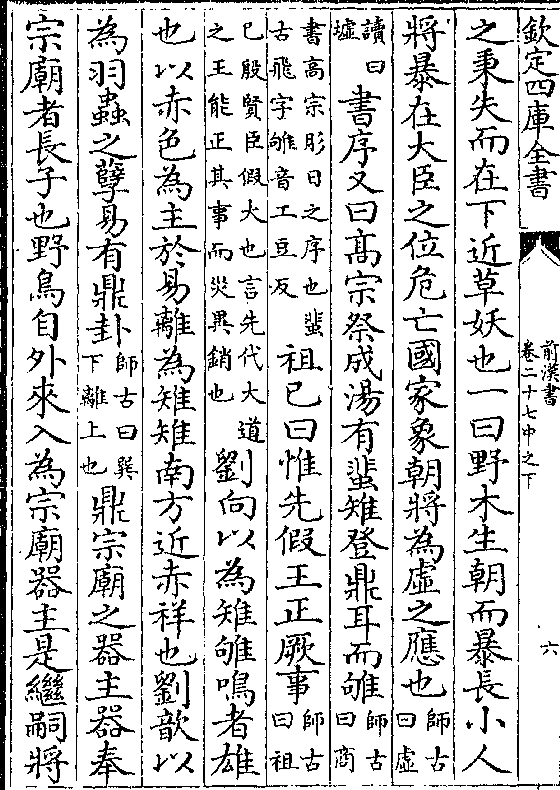 欽定四庫全書
前漢書
卷二十七中之下
六
之秉失而在下近草妖也一曰野木生朝而暴長小人
將暴在大臣之位危亡國家象朝將為虛之應也師古曰虛
讀曰墟書序又曰髙宗祭成湯有蜚雉登鼎耳而雊師古曰商
書高宗肜日之序也蜚古飛字雊音工豆反祖已曰惟先假王正厥事師古曰祖
已殷賢臣假大也言先代大道之王能正其事而災異銷也劉向以為雉雊鳴者雄
也以赤色為主於易離為雉雉南方近赤祥也劉歆以
為羽蟲之孽易有鼎卦師古曰巽下離上也鼎宗廟之器主器奉
宗廟者長子也野鳥自外來入為宗廟器主是繼嗣將